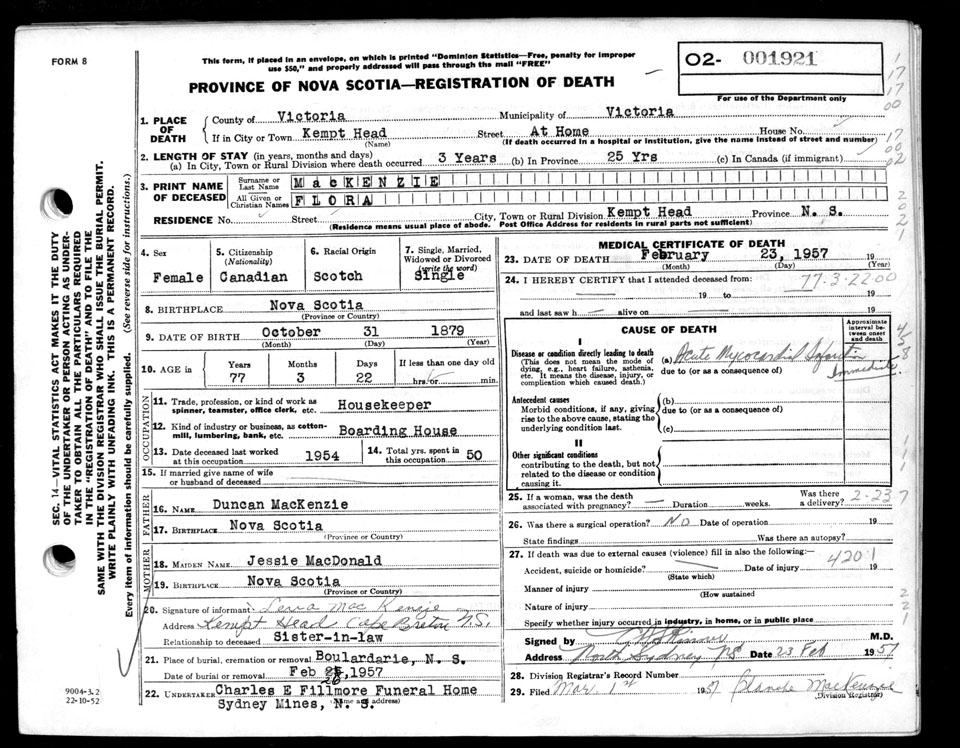 FORM 8
This form, if placed in an envelope, on which is printed "Dominion Statistics—Free, penalty for improper
use $50," and properly addressed will pass through the mail "FREE"
PROVINCE OF NOVA SCOTIA—REGISTRATION OF DEATH
O2- 001921
For use of the Department only
1. PLACE OF DEATH
County of Victoria Municipality of Victoria
If in City or Town Kempt Head Street At Home House No.
(Name) (If death occurred in a hospital or institution, give the name instead of street and number)
2. LENGTH OF STAY (in years, months and days)
(a) In City, Town or Rural Division where death occurred 3 Years (b) In Province 25 Yrs (c) In Canada (if immigrant)
3. PRINT NAME OF DECEASED
Surname or Last Name MacKENZIE
All Given or Christian Names FLORA
RESIDENCE No. Street City, Town or Rural Division Kempt Head Province N. S.
(Residence means usual place of abode. Post Office Address for residents in rural parts not sufficient)
4. Sex
Female
5. Citizenship
(Nationality)
Canadian
6. Racial Origin
Scotch
7. Single, Married,
Widowed or Divorced
(write the word)
Single
8. BIRTHPLACE Nova Scotia
(Province or Country)
9. DATE OF BIRTH October 31 1879
(Month) (Day) (Year)
10. AGE in
Years Months Days If less than one day old
77 3 22 hrs. or min.
OCCUPATION
11. Trade, profession, or kind of work as
spinner, teamster, office clerk, etc. Housekeeper
12. Kind of industry or business, as cotton-
mill, lumbering, bank, etc. Boarding House
13. Date deceased last worked
at this occupation 1954
14. Total yrs. spent in
this occupation 50
15. If married give name of wife
or husband of deceased
FATHER
16. NAME Duncan MacKenzie
17. BIRTHPLACE Nova Scotia
(Province or Country)
MOTHER
18. MAIDEN NAME Jessie MacDonald
19. BIRTHPLACE Nova Scotia
(Province or Country)
20. Signature of informant Mac Kenzie
Address Kempt Head Cape Breton N.S.
Relationship to deceased Sister-in-law
21. Place of burial, cremation or removal Boulardarie, N. S.
Date of burial or removal Feb 26,1957
22. UNDERTAKER Charles E Fillmore Funeral Home
Sydney Mines, N. S.
(Name and address)
MEDICAL CERTIFICATE OF DEATH
23. DATE OF DEATH February 23, 1957 19
(Month) (Day) (Year)
24. I HEREBY CERTIFY that I attended deceased from: 77-3-2200
19 to 19
and last saw h alive on 19
CAUSE OF DEATH
Approximate
interval be-
tween onset
and death
I
Disease or condition directly leading to death
(This does not mean the mode of
dying, e.g., heart failure, asthenia,
etc. It means the disease, injury, or
complication which caused death.)
(a) Acute Myocardial Infarction
due to (or as a consequence of)
Immediate.
Antecedent causes
Morbid conditions, if any, giving
rise to the above cause, stating the
underlying condition last.
(b)
due to (or as a consequence of)
(c)
II
Other significant conditions
contributing to the death, but not
related to the disease or condition
causing it.
25. If a woman, was the death
associated with pregnancy? Duration weeks. Was there
a delivery?
2-23 7
26. Was there a surgical operation? NO Date of operation 19
State findings Was there an autopsy?
27. If death was due to external causes (violence) fill in also the following:
4201
Accident, suicide or homicide? Date of injury 19
(State which)
Manner of injury
(How sustained
Nature of injury
Specify whether injury occurred in industry, in home, or in public place
Signed by M.D.
Address North Sydney NS Date 23 Feb 1957
28. Division Registrar's Record Number
29. Filed Mar. 1st 1957 Blanche MacKenzie
(Division Registrar)
SEC. 14—VITAL STATISTICS ACT MAKES IT THE DUTY
OF THE UNDERTAKER OR PERSON ACTING AS UNDER-
TAKER TO OBTAIN ALL THE PARTICULARS REQUIRED
IN THE "REGISTRATION OF DEATH" AND TO FILE THE
SAME WITH THE DIVISION REGISTRAR WHO SHALL ISSUE THE BURIAL PERMIT.
WRITE PLAINLY WITH UNFADING INK. THIS IS A PERMANENT RECORD.
Every item of information should be carefully supplied. (See reverse side for instructions.)
9004-3.2
22-10-52